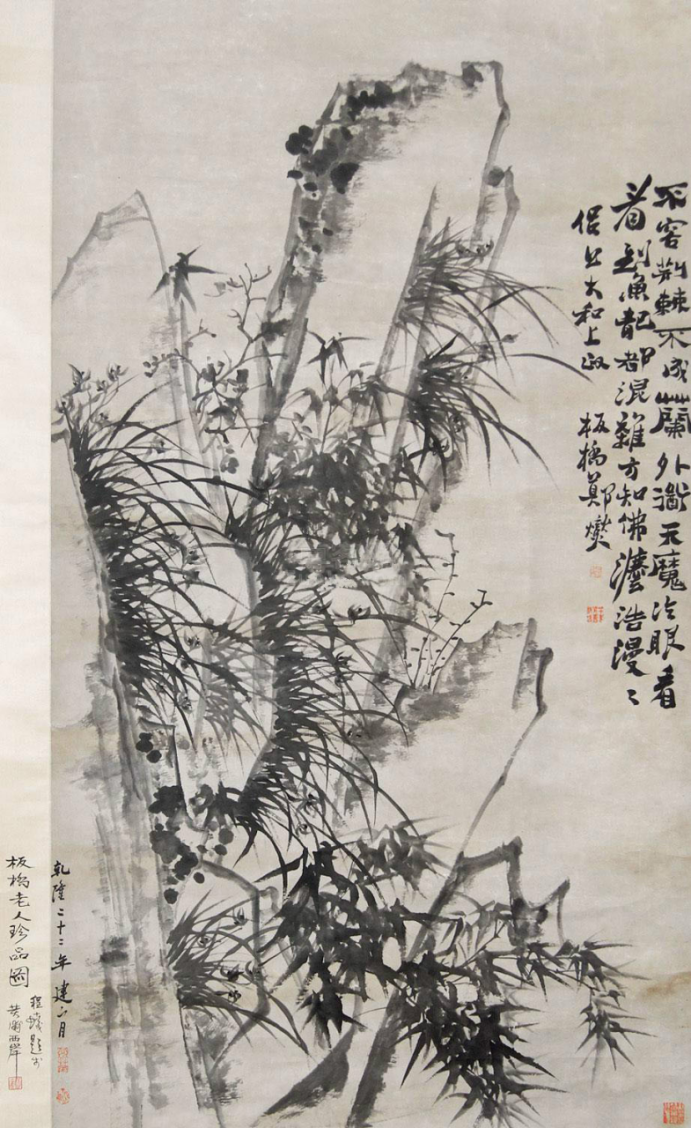 不容荆棘不成蘭外道天魔冷眼看
看到魚龍都混雜方知佛法浩漫漫
侶公大和上政 板橋鄭燮
乾隆二十二年建子月
板橋老人珍品圖
題於黃浦西岸